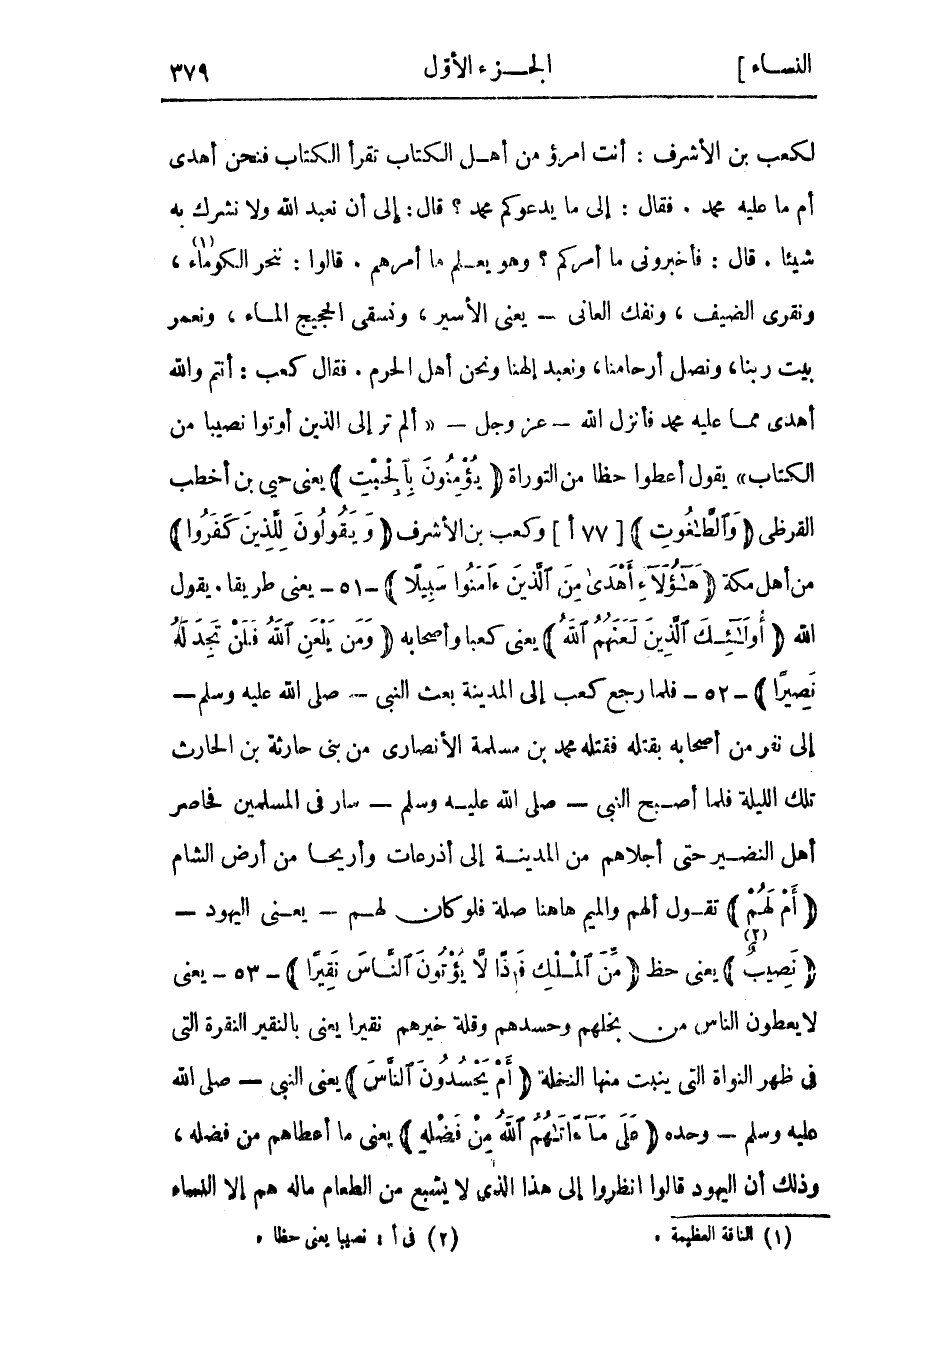 النساء ] الجزء الأول ٣٧٩
لكعب بن الأشرف : أنت امرؤ من أهل الكتاب تقرأ الكتاب فنحن أهدى
أم ما عليه محمد . فقال : إلى ما يدعوكم محمد ؟ قال : إلى أن نعبد الله ولا نشرك به
شيئا . قال : فأخبرونى ما أمركم ؟ وهو يعلم ما أمرهم . قالوا : ننحر الكوماء (١) ،
ونقرى الضيف ، ونفك العانى — يعنى الأسير ، ونسقى الحجيج الماء ، ونعمر
بيت ربنا ، ونصل أرحامنا ، ونعبد إلهنا ونحن أهل الحرم . فقال كعب : أنتم والله
أهدى مما عليه محمد فأنزل الله — عز وجل — « ألم تر إلى الذين أوتوا نصيبا من
الكتاب » يقول أعطوا حظا من التوراة ﴿ يُؤْمِنُونَ بِٱلْجِبْتِ ﴾ يعنى حيى بن أخطب
القرظى ﴿ وَٱلطَّـٰغُوتِ ﴾ [ ٧٧ أ ] وكعب بن الأشرف ﴿ وَيَقُولُونَ لِلَّذِينَ كَفَرُوا ﴾
من أهل مكة ﴿ هَـٰٓؤُلَآءِ أَهْدَىٰ مِنَ ٱلَّذِينَ ءَامَنُوا سَبِيلًا ﴾ - ٥١ - يعنى طريقا . يقول
الله ﴿ أُولَـٰٓئِكَ ٱلَّذِينَ لَعَنَهُمُ ٱللَّهُ ﴾ يعنى كعبا وأصحابه ﴿ وَمَن يَلْعَنِ ٱللَّهُ فَلَنْ تَجِدَ لَهُ
نَصِيرًا ﴾ - ٥٢ - فلما رجع كعب إلى المدينة بعث النبى — صلى الله عليه وسلم —
إلى نفر من أصحابه بقتله فقتله محمد بن مسلمة الأنصارى من بنى حارثة بن الحارث
تلك الليلة فلما أصبح النبى — صلى الله عليه وسلم — سار فى المسلمين فحاصر
أهل النضير حتى أجلاهم من المدينة إلى أذرعات وأريحا من أرض الشام
﴿ أَمْ لَهُمْ ﴾ تقول ألهم والميم هاهنا صلة فلو كان لهم — يعنى اليهود —
﴿ نَصِيبٌ (٢) ﴾ يعنى حظ ﴿ مِّنَ ٱلْمُلْكِ فَإِذًا لَّا يُؤْتُونَ ٱلنَّاسَ نَقِيرًا ﴾ - ٥٣ - يعنى
لا يعطون الناس من بخلهم وحسدهم وقلة خيرهم نقيرا يعنى بالنقير النقرة التى
فى ظهر النواة التى ينبت منها النخلة ﴿ أَمْ يَحْسُدُونَ ٱلنَّاسَ ﴾ يعنى النبى — صلى الله
عليه وسلم — وحده ﴿ عَلَى مَآ ءَاتَـٰهُمُ ٱللَّهُ مِنْ فَضْلِهِ ﴾ يعنى ما أعطاهم من فضله ،
وذلك أن اليهود قالوا انظروا إلى هذا الذى لا يشبع من الطعام ماله هم إلا النساء
(١) الناقة العظيمة . (٢) فى أ : نصيبا يعنى حظا .